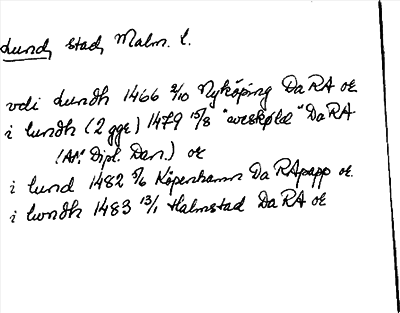 Lund, stad, Malm. l.
vdi Lundh 1466 2/10 Nyköping DaRA or
i lundh (2 ggr) 1479 15/8 "weskøld" DaRA
(AM Dipl. Dan.) or
i lund 1482 5/6 Köpenhamn DaRApapp or.
i lwndh 1483 13/1 Halmstad DaRA or